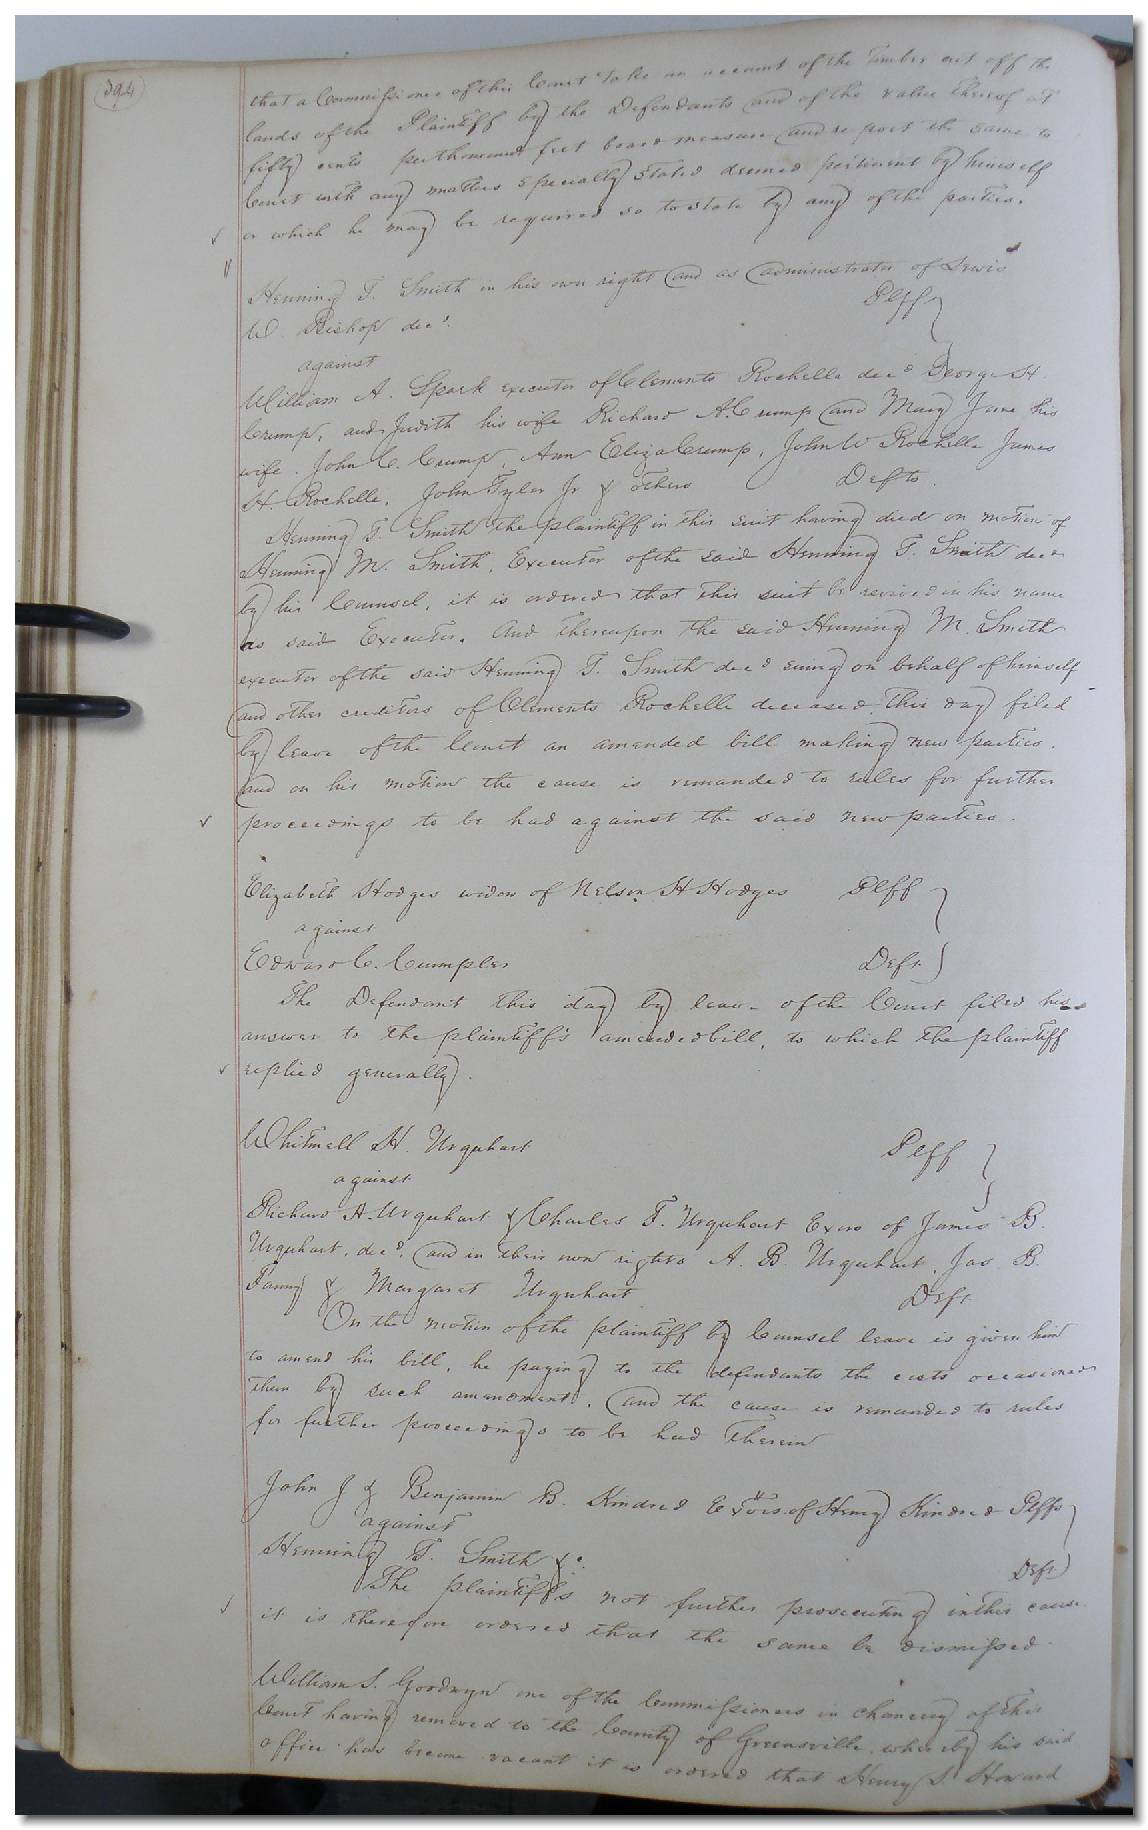 394
that a Commissioner of this Court take an account of the Timber cut off the
lands of the Plaintiff by the Defendants and of the value thereof at
fifty cents per thousand feet board measure and report the same to
Court with any matters specially stated deemed pertinent by himself
or which he may be required so to state by any of the parties.
Henning T. Smith in his own right and as administrator of Lewis
W. Bishop decd. Plff
against
William A. Spark executor of Clements Rochelle decd George H.
Crump, and Judith his wife Richard A. Crump and Mary Jane his
wife. John C. Crump, Ann Eliza Crump, John W Rochelle James
H. Rochelle, John Tyler Jr & others Defts.
Henning T. Smith the plaintiff in this suit having died on motion of
Henning M. Smith, Executor of the said Henning T. Smith decd
by his Counsel, it is ordered that this suit be revived in his name
as said Executor. And thereupon the said Henning M. Smith
executor of the said Henning T. Smith decd suing on behalf of himself
and other creditors of Clements Rochelle deceased this day filed
by leave of the Court an amended bill making new parties.
and on his motion the cause is remanded to rules for further
proceedings to be had against the said new parties.
Elizabeth Hodges widow of Nelson H Hodges Plff
against
Edward C. Cumpler Deft.
The Defendant this day by leave of the Court filed his
answer to the plaintiff's amended bill, to which the plaintiff
replied generally.
Whitmell H. Urquhart Plff
against
Richard A. Urquhart & Charles F. Urquhart Exors of James B.
Urquhart, decd. and in their own rights A. B. Urquhart, Jas B.
Fanny & Margaret Urquhart Deft
On the motion of the plaintiff by Counsel leave is given him
to amend his bill, he paying to the defendants the costs occasioned
them by such amendment, and the cause is remanded to rules
for further proceedings to be had therein
John J & Benjamin B. Kindred Extors. of Henry Kindred Plffs
against
Henning T. Smith &c. Deft
The plaintiffs not further prosecuting in this cause
it is therefore ordered that the same be dismissed.
William S. Goodwyn one of the Commissioners in chancery of this
Court having removed to the County of Greensville, whereby his said
office has become vacant it is ordered that Henry S. Howard